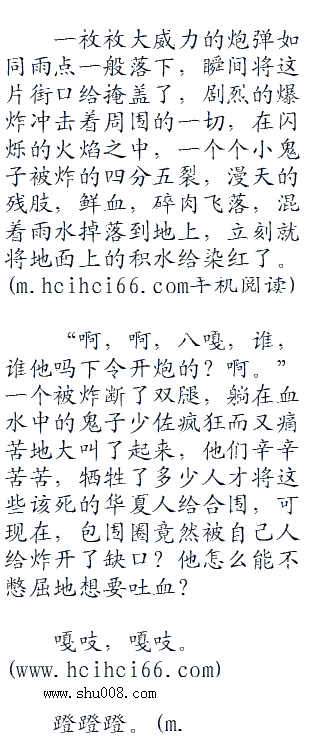 一枚枚大威力的炮弹如
同雨点一般落下，瞬间将这
片街口给掩盖了，剧烈的爆
炸冲击着周围的一切，在闪
烁的火焰之中，一个个小鬼
子被炸的四分五裂，漫天的
残肢，鲜血，碎肉飞落，混
着雨水掉落到地上，立刻就
将地面上的积水给染红了。
(m.hcihci66.com手机阅读)
“啊，啊，八嘎，谁，
谁他吗下令开炮的？啊。”
一个被炸断了双腿，躺在血
水中的鬼子少佐疯狂而又痛
苦地大叫了起来，他们辛辛
苦苦，牺牲了多少人才将这
些该死的华夏人给合围，可
现在，包围圈竟然被自己人
给炸开了缺口？他怎么能不
憋屈地想要吐血？
嘎吱，嘎吱。
(www.hcihci66.com)
www.shu008.com
蹬蹬蹬。(m.